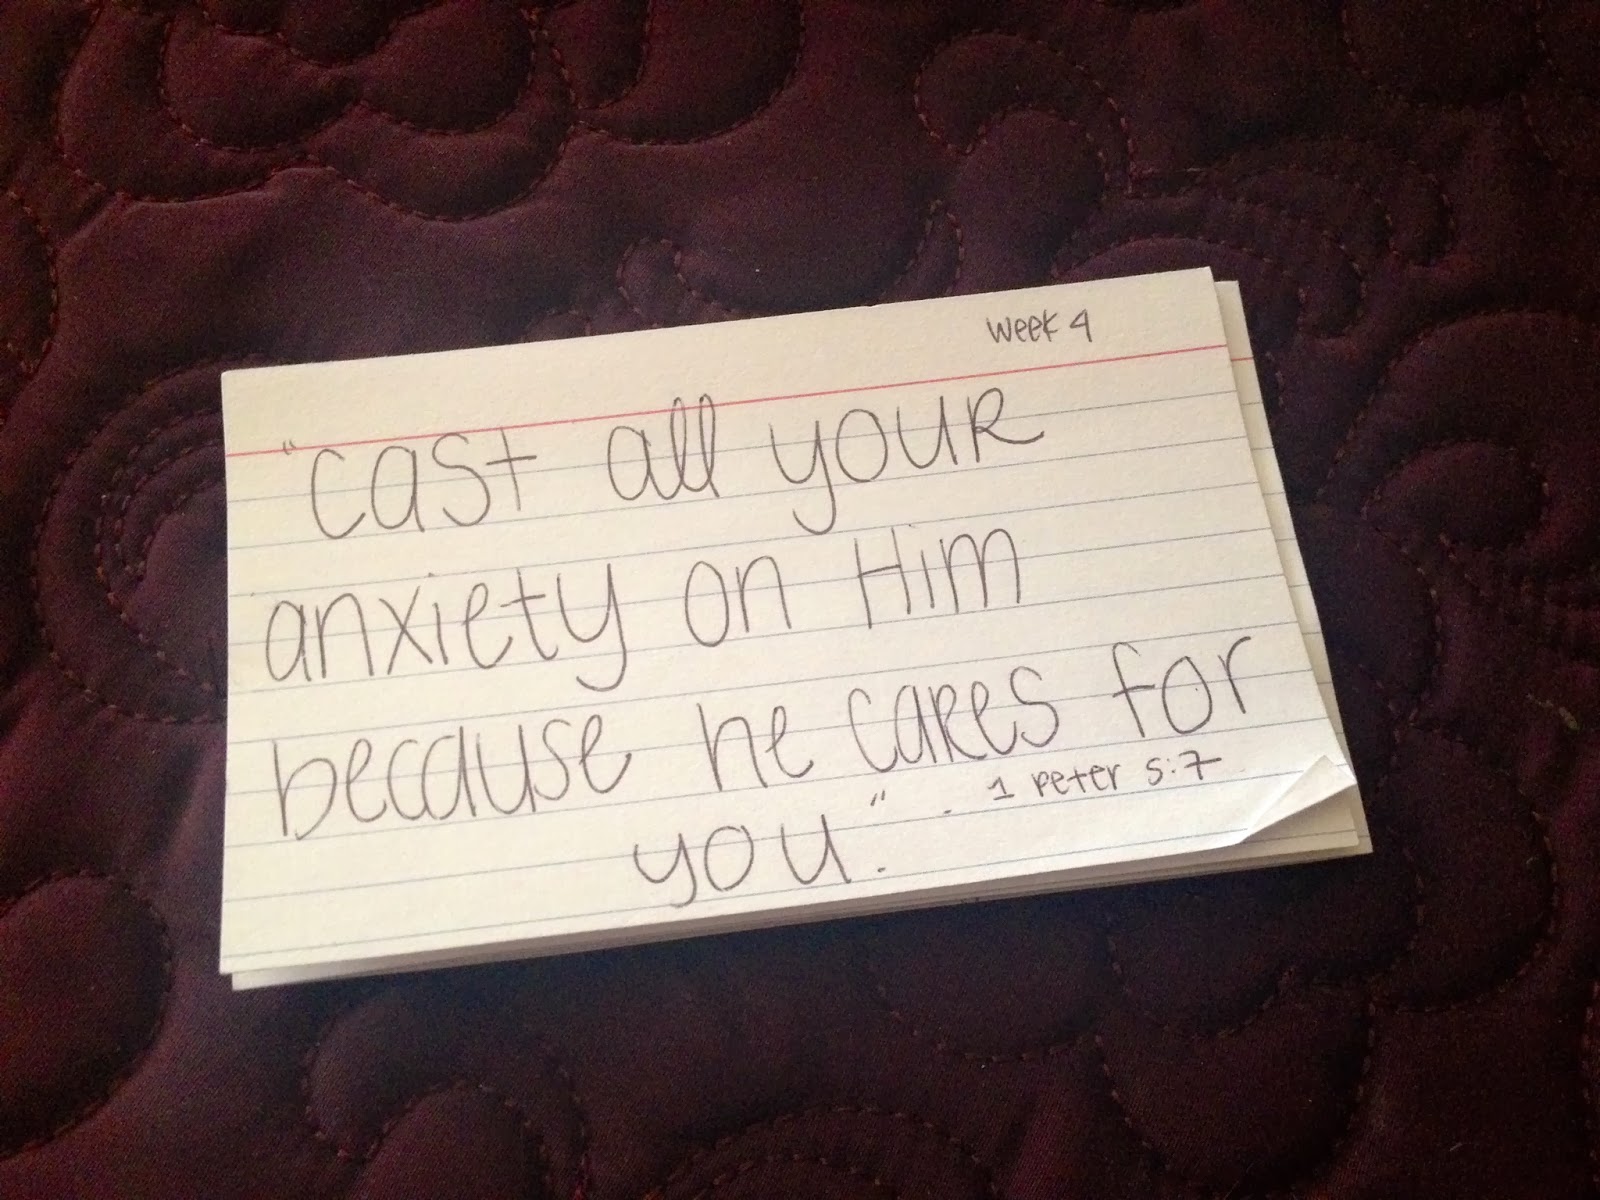 week 4
"cast all your
anxiety on Him
because he cares for
you." - 1 peter 5:7